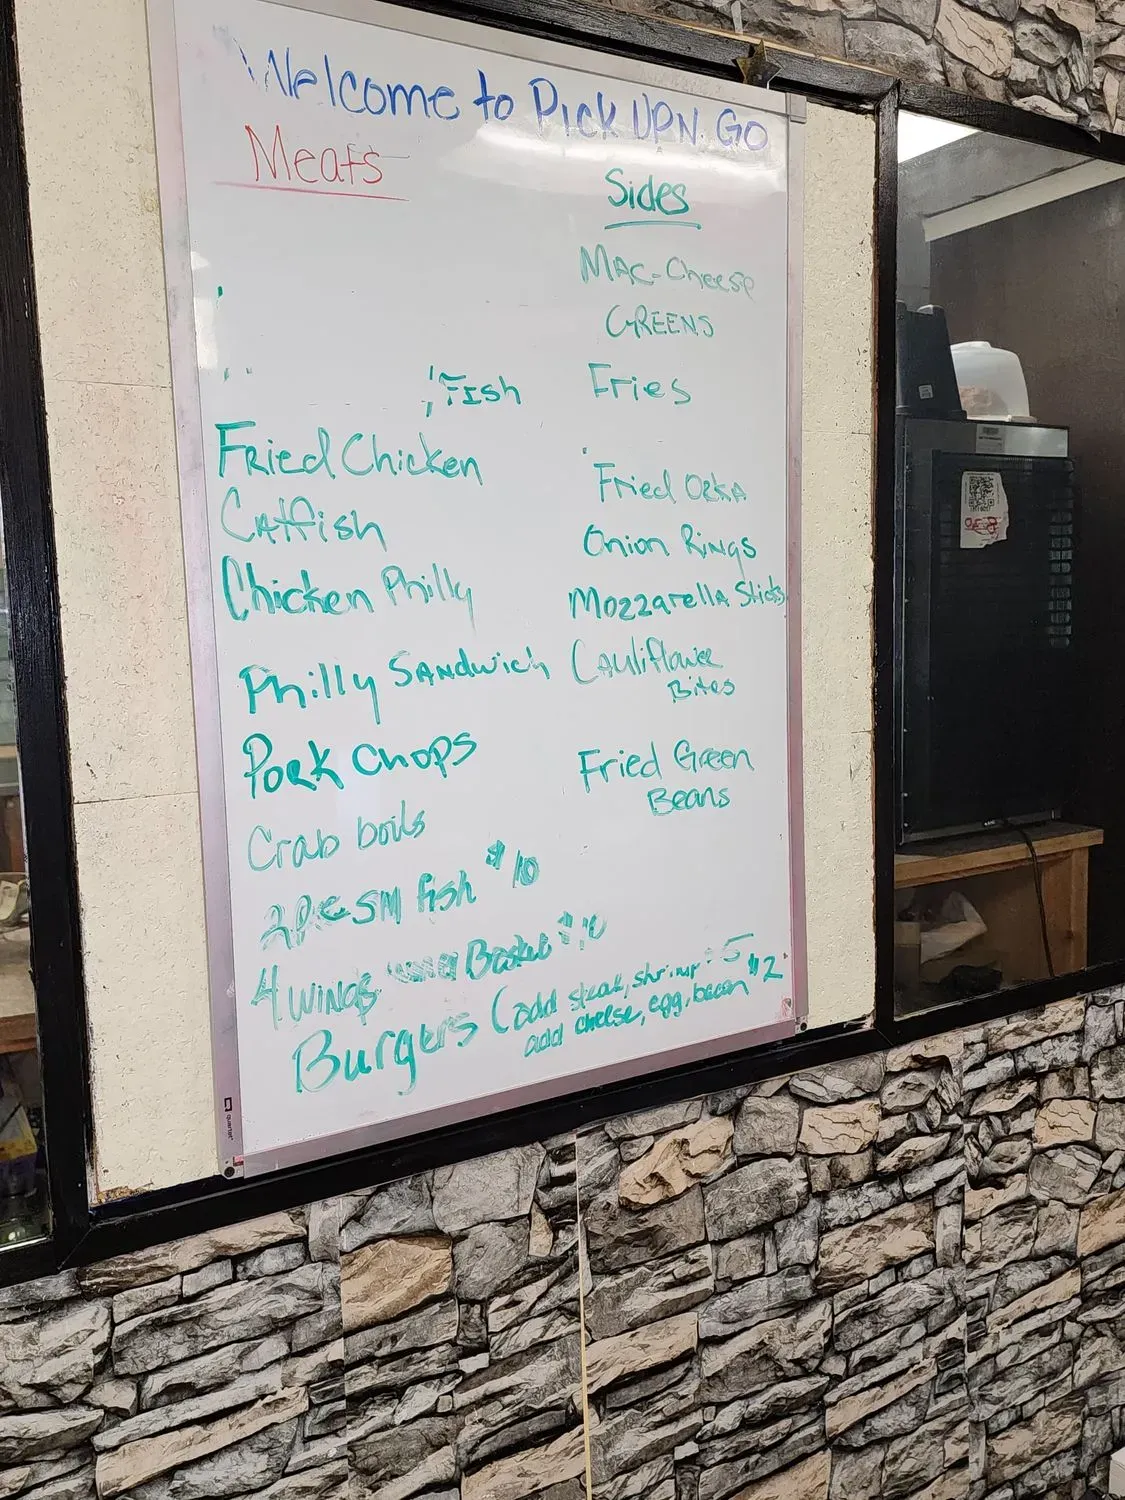 Welcome to Pick UPN. GO
Meats
Fish
Fried Chicken
Catfish
Chicken Philly
Philly Sandwich
Pork Chops
Crab boils
2 Pce SM fish $10
4 Wings Basket $10
Burgers (add steak, shrimp $5
add cheese, egg, bacon $2
Sides
Mac-Cheese
GREENS
Fries
Fried OKRA
Onion Rings
Mozzarella Sticks
Cauliflower
Bites
Fried Green
Beans
quartet